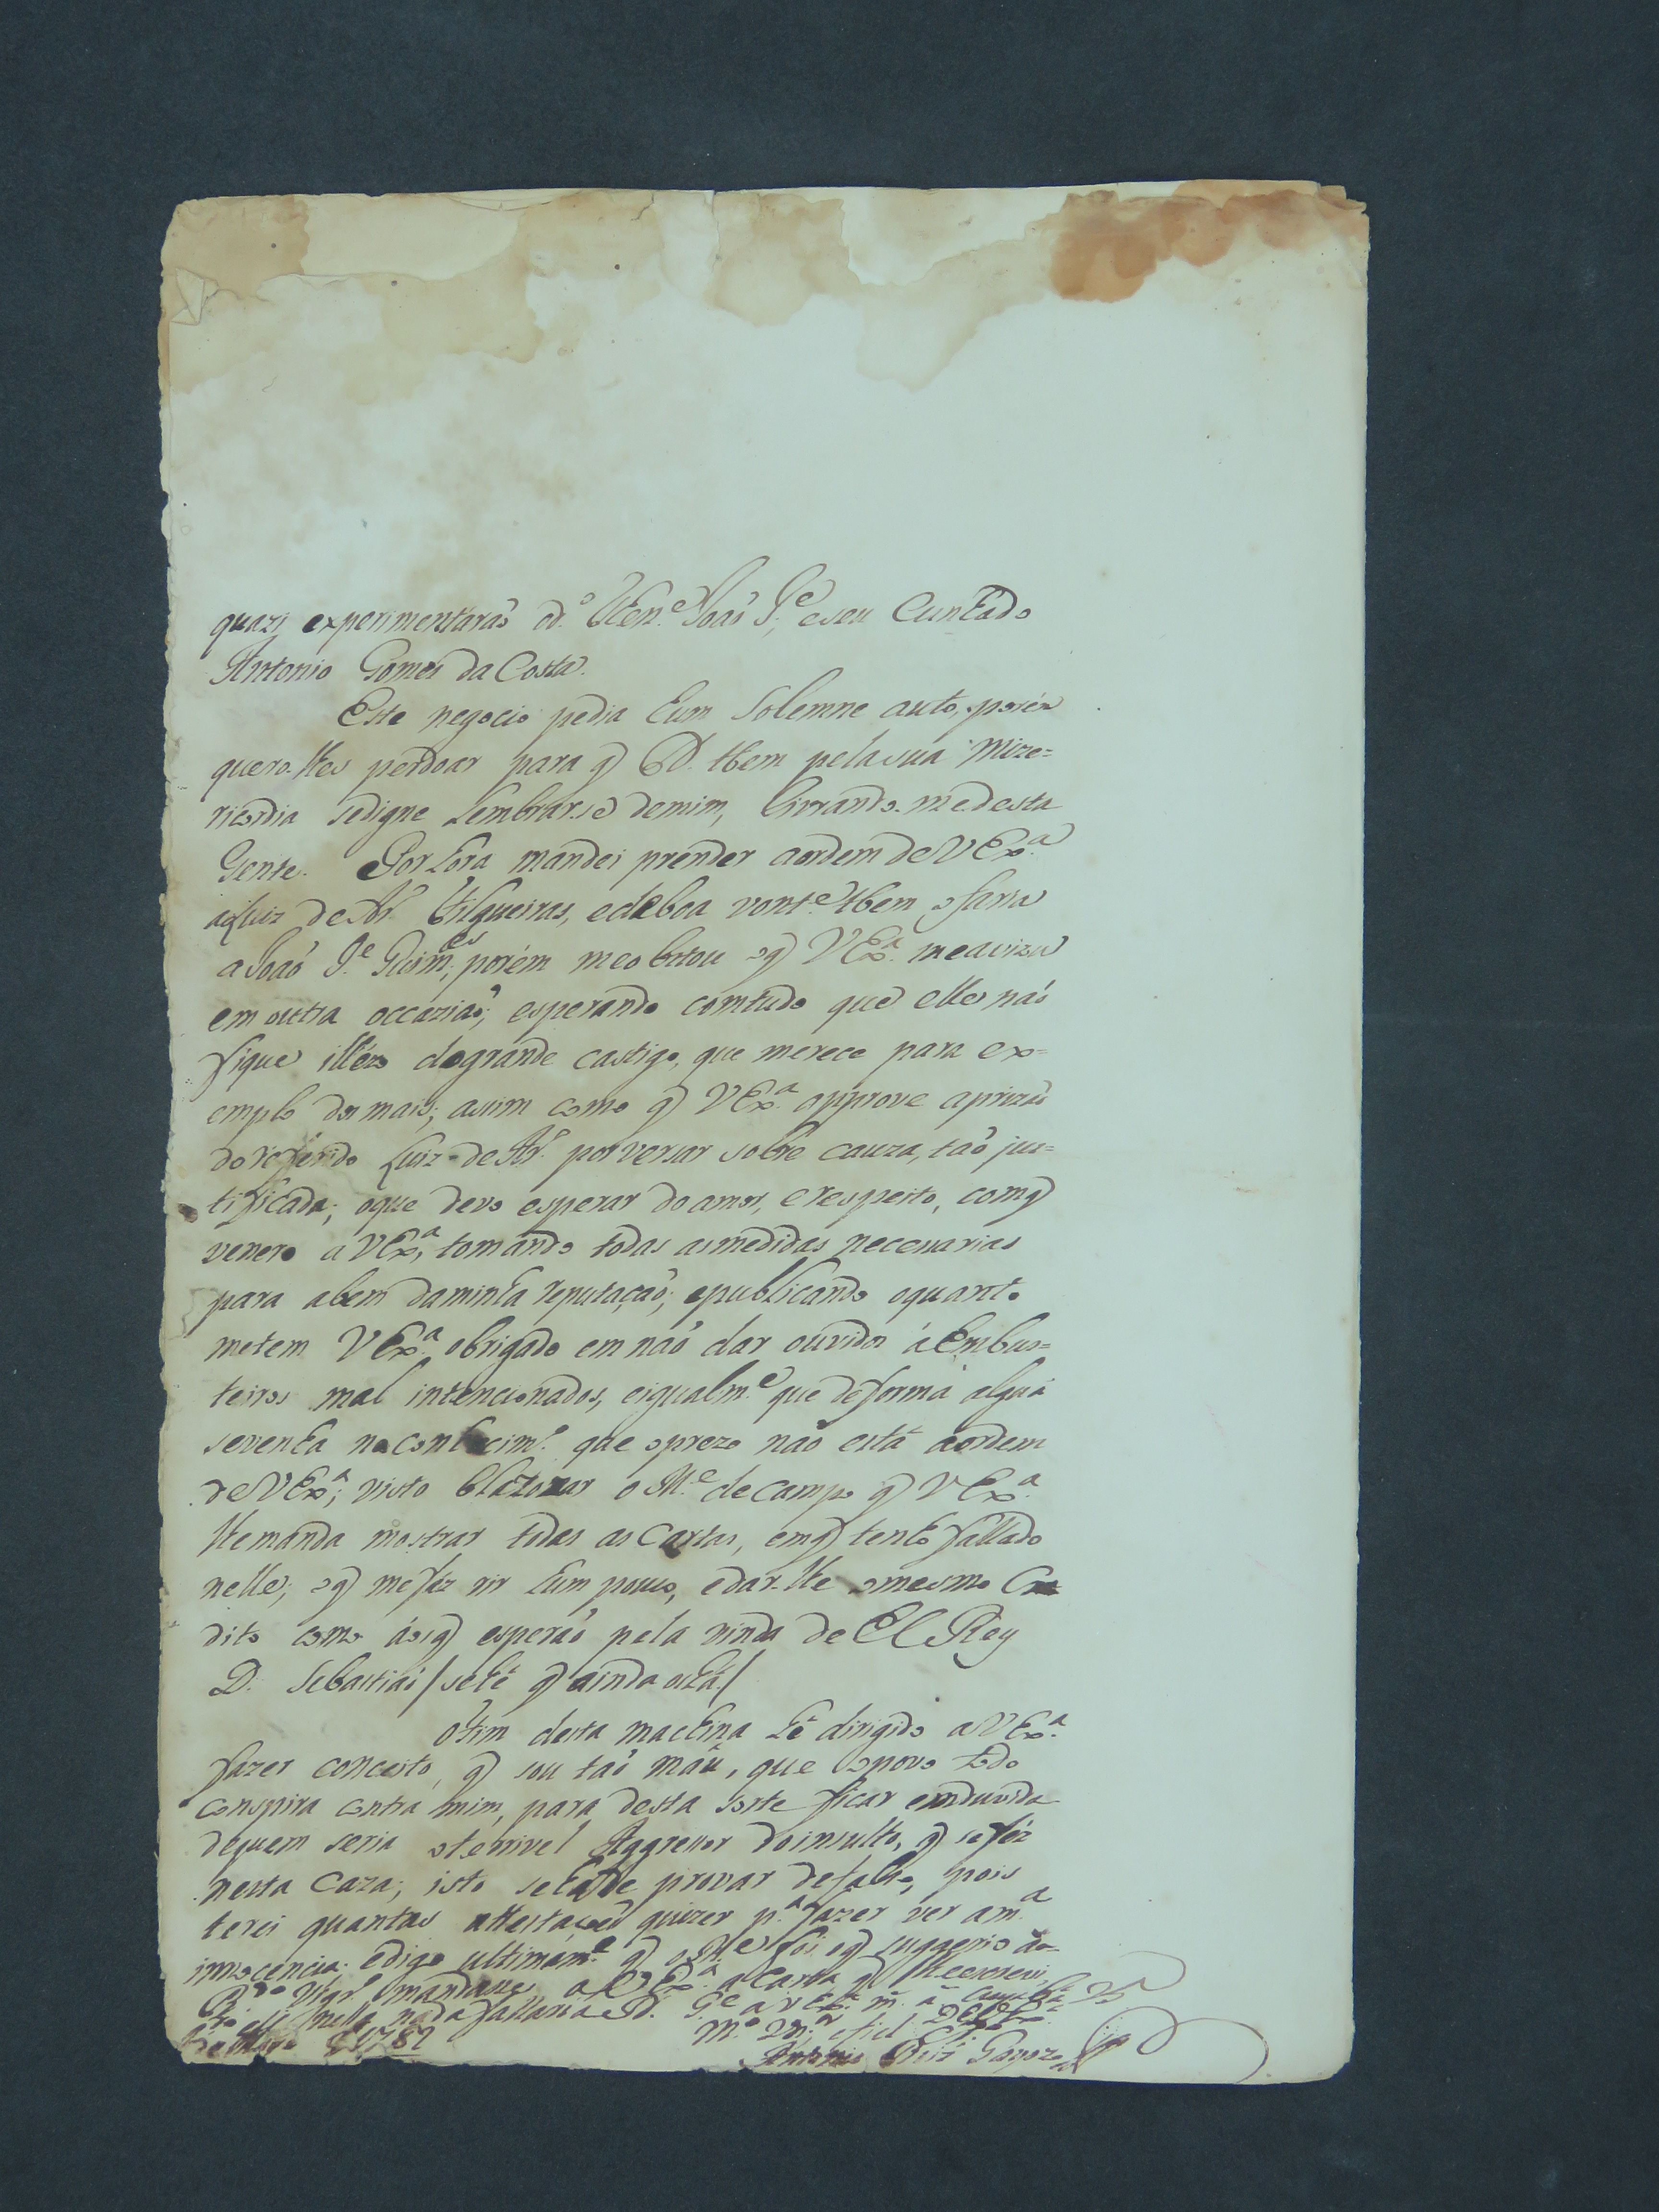 quazi experimentáraõ od.º Then.e Joaõ J.e, eseu Cunhádo
Antonio Gomes da Costa.
Este negocio pedia hum Solemne auto, porém
quero-lhes perdoar para q̃ D.s tbem pela sua Mize=
ricordia sedigne Lembrar-se demim, livrando-me desta
Gente. Por hora mandei prender aordem de VEx.ª
aLuiz de Ar.º Filgueiras, edeboa vont.e tbem o faria
a Joaõ J.e Guim.es; porém meobstou oq̃ VEx.ª meaviza
em outra occaziaõ; esperando comtudo que elles naõ
fique illézo dogrande castigo, que merece para ex=
emplo dos mais; assim como q̃ VEx.ª approve aprizaõ
do referido Luiz de Ar.º por versar sobre cauza, taõ jus=
tificada; oque devo esperar do amor, erespeito, comq̃
venero a VEx.ª, tomando todas asmedidas necessarias
para abem daminha reputaçaõ; epublicando oquanto
metem VEx.ª obrigado em naõ dar ouvidos áEmbus=
teiros mal intencionados, eigualm.e que deforma algũa
sevenha noconhecim.º que oprezo naõ está áordem
de VEx.ª; visto blazonar o M.e de campo q̃ VEx.ª
lhemanda mostrar todas as Cartas, emq̃ tenho fallado
nelle; oq̃ mefáz rir hum pouco, edar-lhe omesmo Cre
dito como áosq̃ esperaõ pela vinda de El Rey
D. Sebastiaõ / sehé q̃ ainda oshá /
Ofim desta machina hé dirigido a VEx.ª
fazer conceito, q̃ sou taõ máu, que opovo todo
conspira contra mim, para desta sorte ficar emduvida
dequem seria oterrivel Aggressor doinsulto, q̃ sefez
nesta Caza; isto sehade provar defalso, pois
terei quantas attestaçoẽs quizer p.ª fazer ver am.ª
innocencia. Edigo ultimam.e q̃ o M.e foi oq̃ suggerio ao
R.do Vigr.º mandasse a VEx.ª a Carta q̃ lheescrevi,
nella nada fallaria D.s G.e a VEx.ª m.s a.s
de Mayo 1782
M.to Ven.or efiel
Antonio